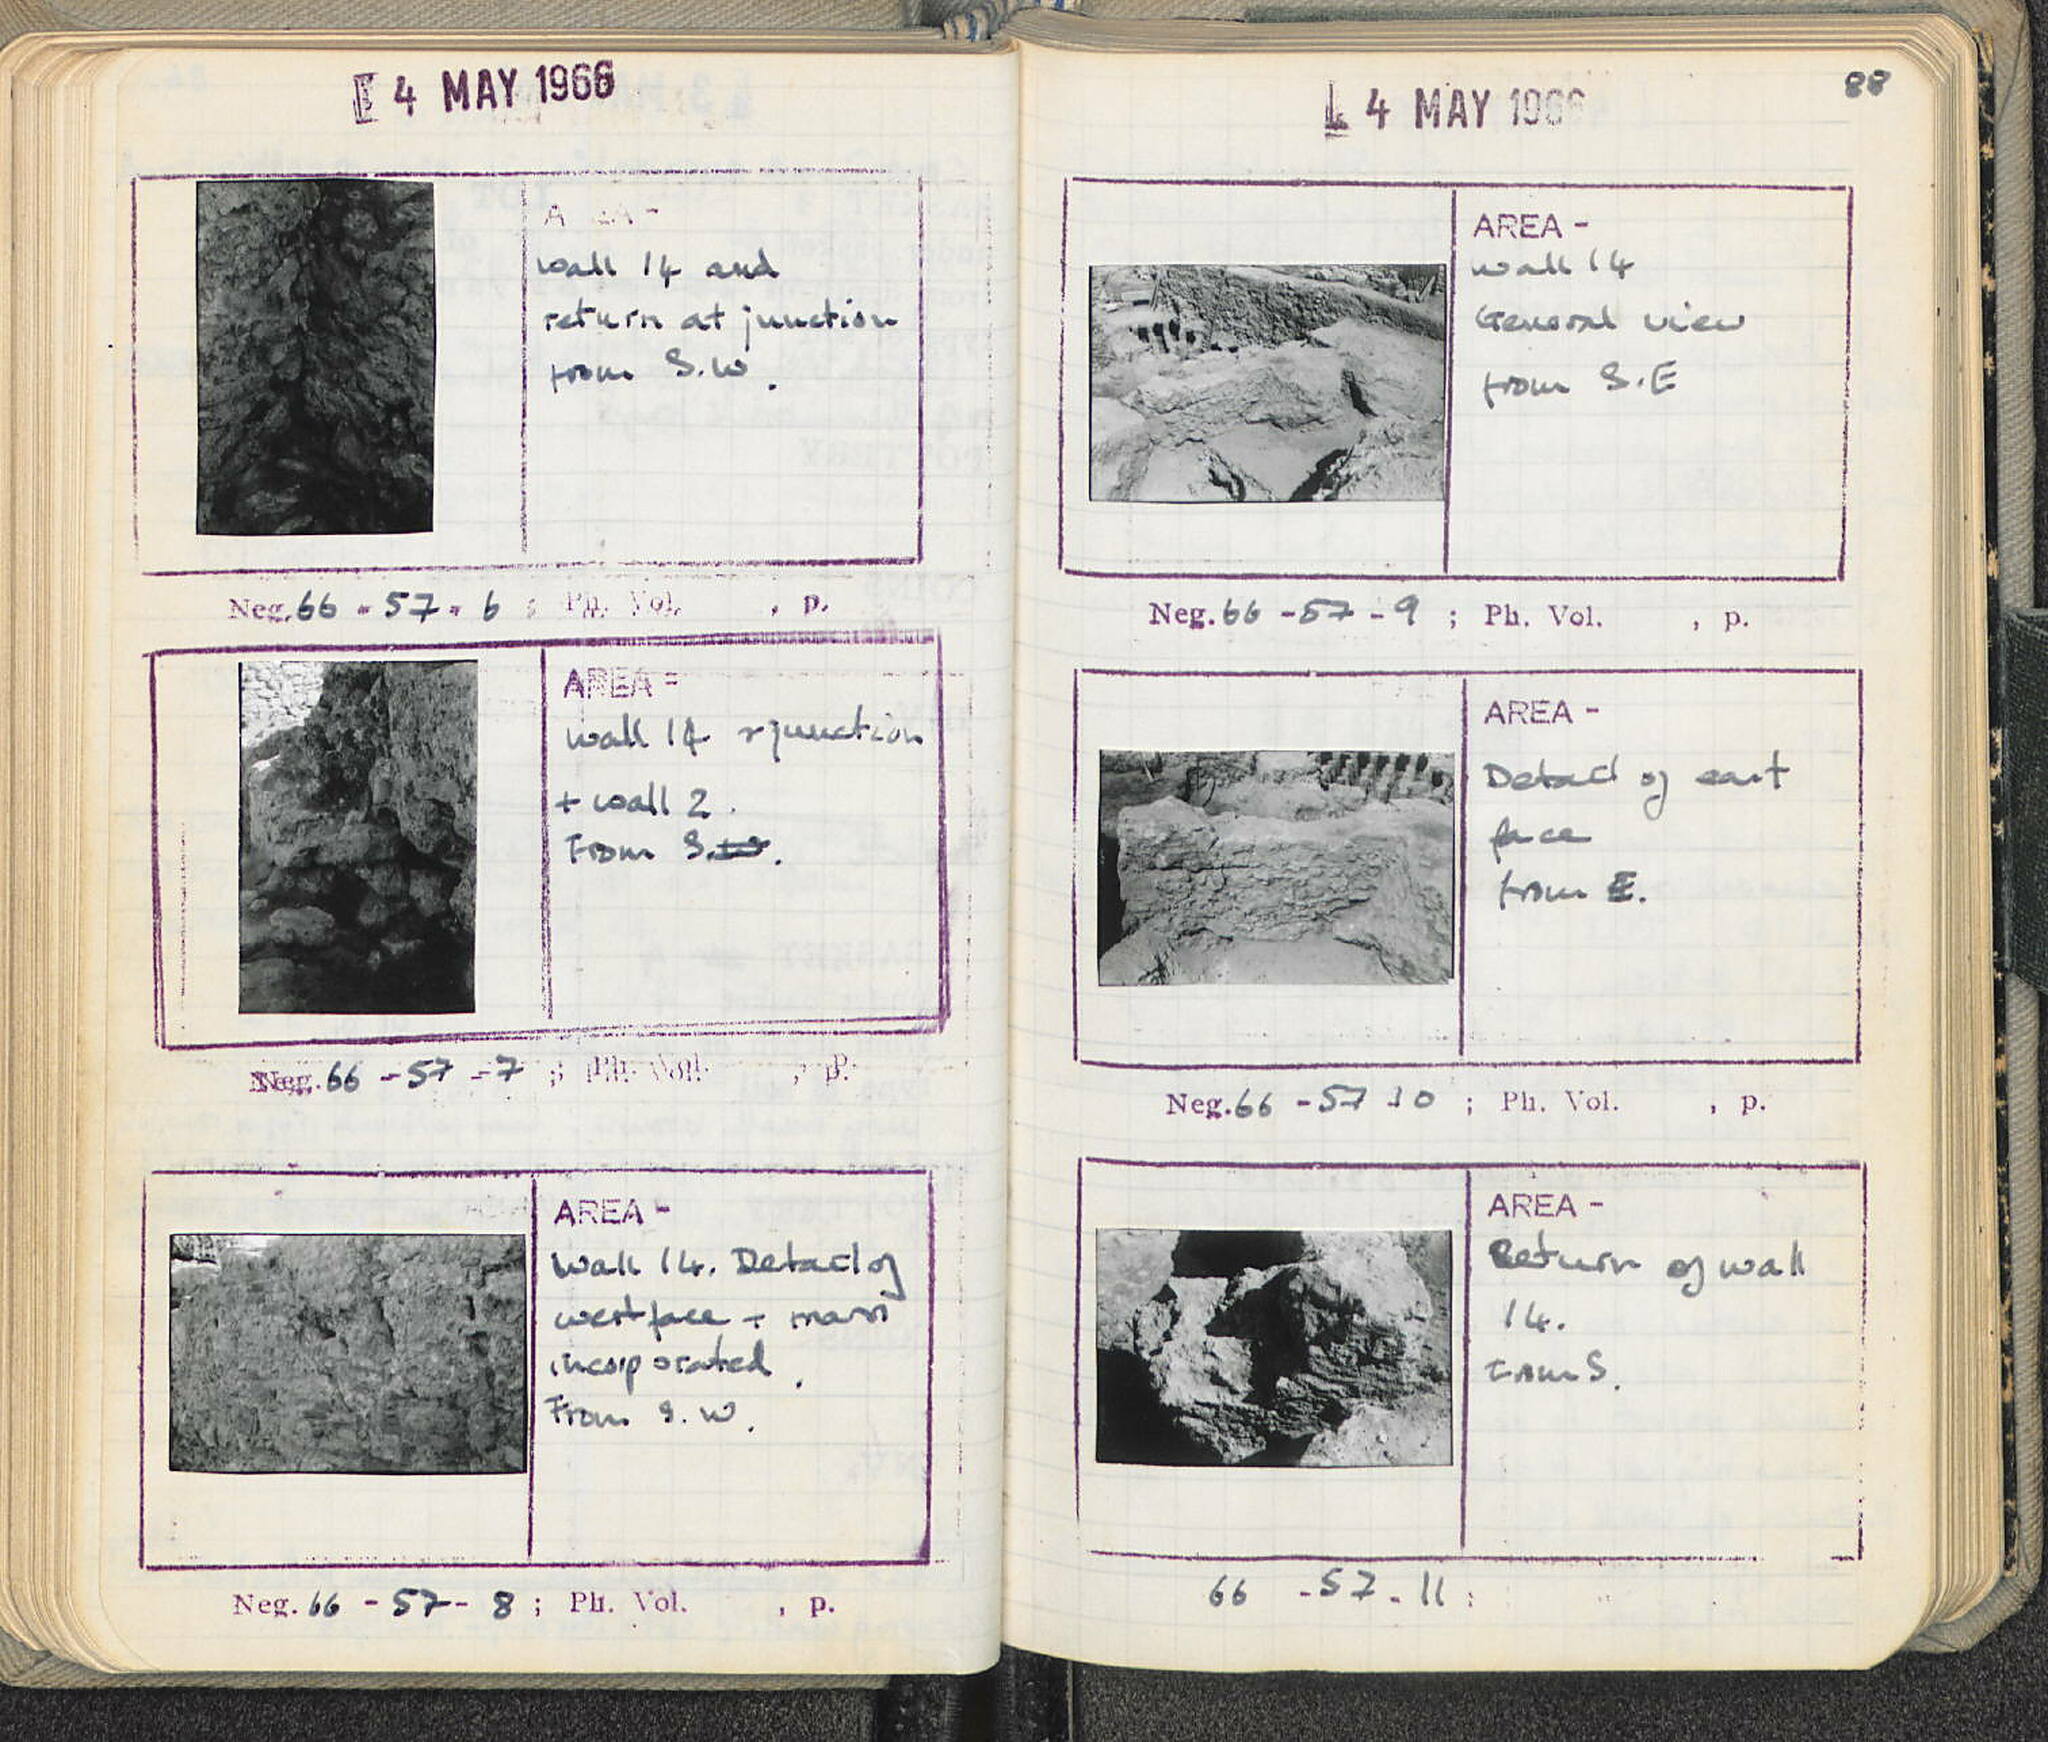 4 MAY 1966
AREA -
Wall 14 and
return at junction
from S.W.
Neg. 66 - 57 - 6 ; Ph. Vol. , p.
AREA -
Wall 14 + junction
+ wall 2.
From S.
Neg. 66 - 57 - 7 ; Ph. Vol. , p.
AREA -
Wall 14. Detail of
west face + mass
incorporated.
From S.W.
Neg. 66 - 57 - 8 ; Ph. Vol. , p.
4 MAY 1966
88
AREA -
Wall 14
General view
from S.E
Neg. 66 - 57 - 9 ; Ph. Vol. , p.
AREA -
Detail of east
face
from E.
Neg. 66 - 57 - 10 ; Ph. Vol. , p.
AREA -
Return of wall
14.
From S.
66 - 57 - 11 ;